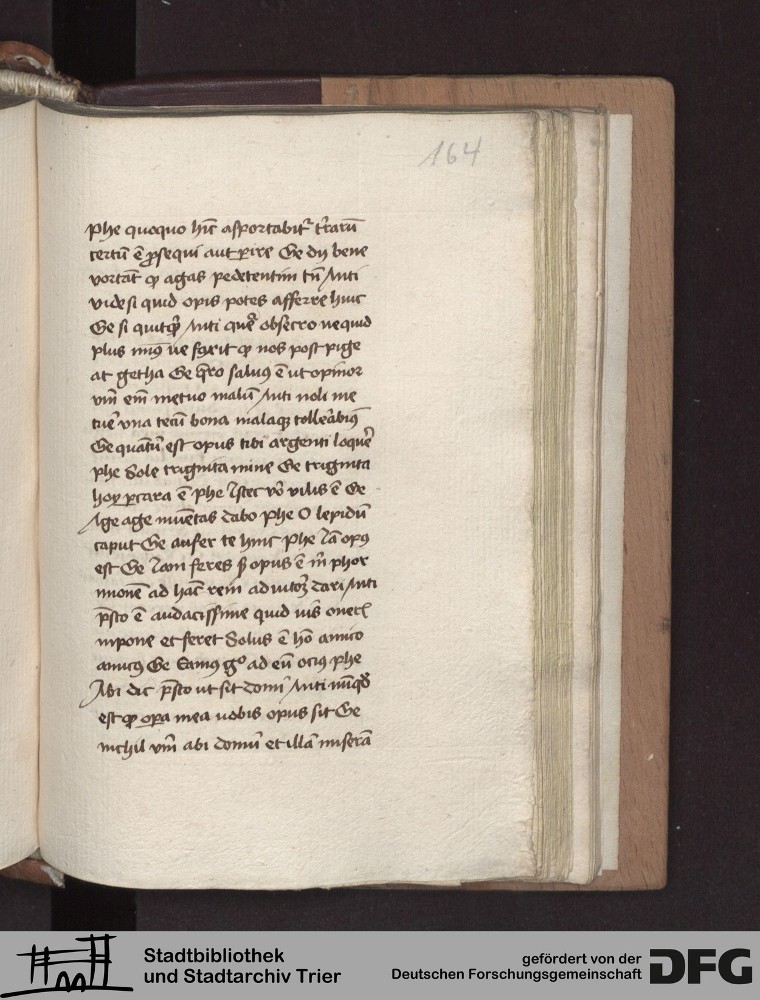 164
Phe quoquo hīc asportabit᷑ t᷑rarū
certū ē ꝓsequi aut ꝑire Ge dij bene
vortāt ꝙ agas pedetentim tn̄ Anti
vide si quid opis potes afferre huic
Ge si quitꝙ̄ Anti que᷑ obsecro ne quid
plus min᷒ ve faxit ꝙ nos post pige
at getha Ge q̄ro saluꝰ ē ut opinor
vm̄ em̄ metuo malū Anti noli me
tue᷑ vna tecū bona malaqꝫ tolle᷑abiꝰ
Ge quātū est opus tibi argenti loque᷑
Phe Sole triginta mine Ge triginta
hoy ꝑcara ē phe Istec vo᷑ vilis ē Ge
Age age inuētas dabo Phe O lepidū
caput Ge aufer te hinc Phe Iā opꝰ
est Ge Iam feres ꝭ opus ē m̄ phor
mionē ad hāc rem adiutoꝝ dari Anti
p̄sto ē audacissime quid uis oneris
impone et feret Solus ē hō amico
amicꝰ Ge Eamꝰ gͦ ad eū ociꝰ phe
Abi dic p̄sto ut sit domi Anti nūqͩ
est ꝙ oꝑa mea uobis opus sit Ge
nichil vm̄ abi domū et illā miserā
Stadtbibliothek
und Stadtarchiv Trier
gefördert von der
Deutschen Forschungsgemeinschaft
DFG